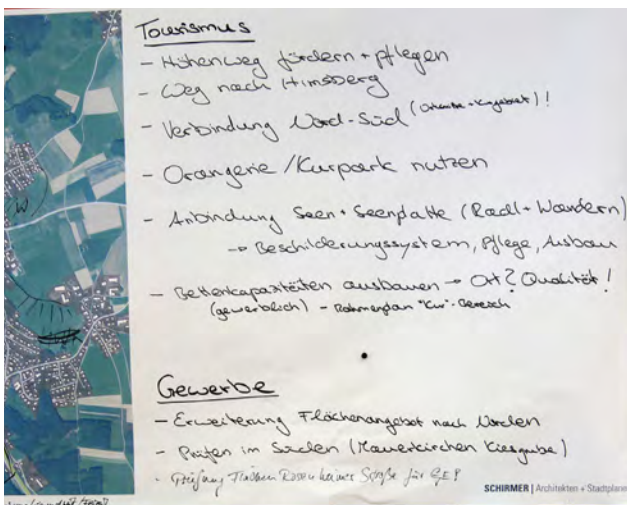 Tourismus
- Höhenweg fördern + pflegen
- Weg nach Hirnsberg
- Verbindung Nord-Süd
- Orangerie / Kurpark nutzen
- Anbindung Seen + Seenplatte (Radl + Wandern)
→ Beschilderungssystem, Pflege, Ausbau
- Bettenkapazitäten ausbauen → Ort? Qualität!
(gewerblich) - Rahmenplan "Kur"-Bereich
Gewerbe
- Erweiterung Flächenangebot nach Norden
- Prüfen im Süden (Mauerkirchen Kiesgrube)
- Prüfung Flächen Rosenheimer Straße für GE?
SCHIRMER | Architekten + Stadtplaner